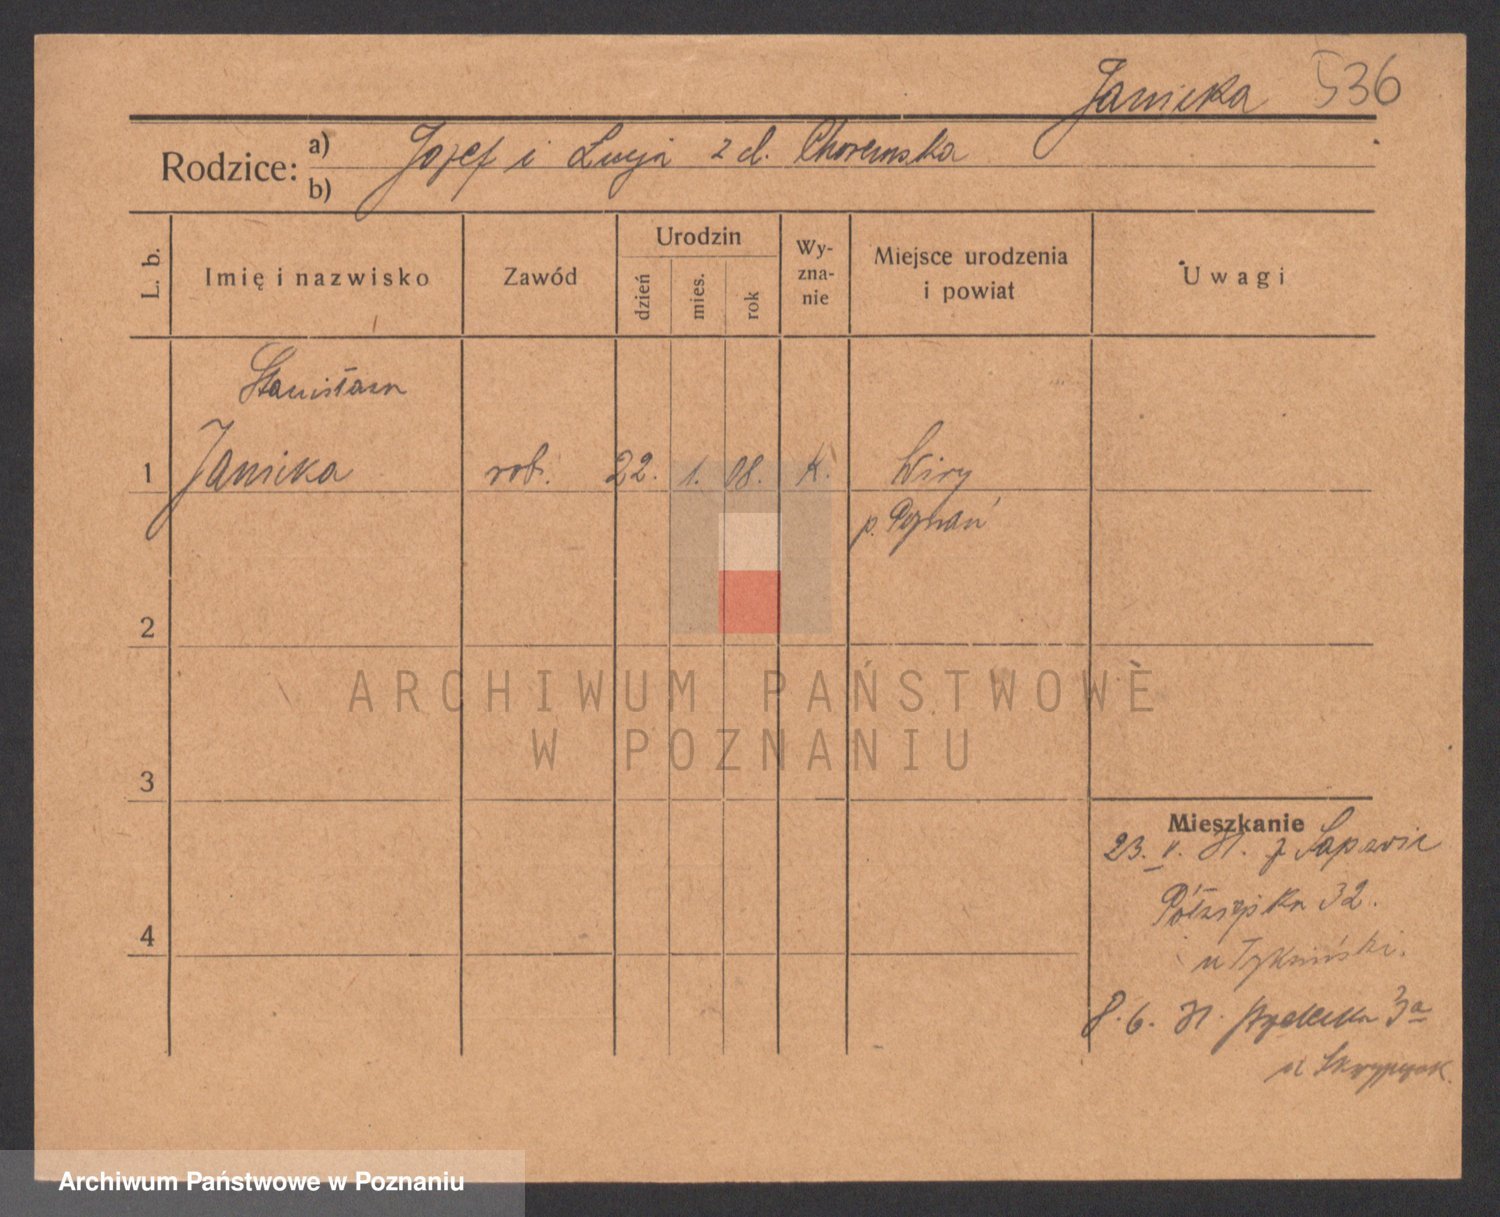 Janicka 536
Rodzice: a) Józef i Łucja z d. Choremska
b)
L. b.
Imię i nazwisko
Zawód
Urodzin
dzień
mies.
rok
Wy-
zna-
nie
Miejsce urodzenia
i powiat
Uwagi
Stanisława
1 Janicka rob. 22. 1. 08. K. Wiry
p. Poznań
2
3
4
ARCHIWUM PAŃSTWOWE
W POZNANIU
Mieszkanie
23. V. 31. z
Półwiejska 32.
u
8. 6. 31. 3a
u
Archiwum Państwowe w Poznaniu